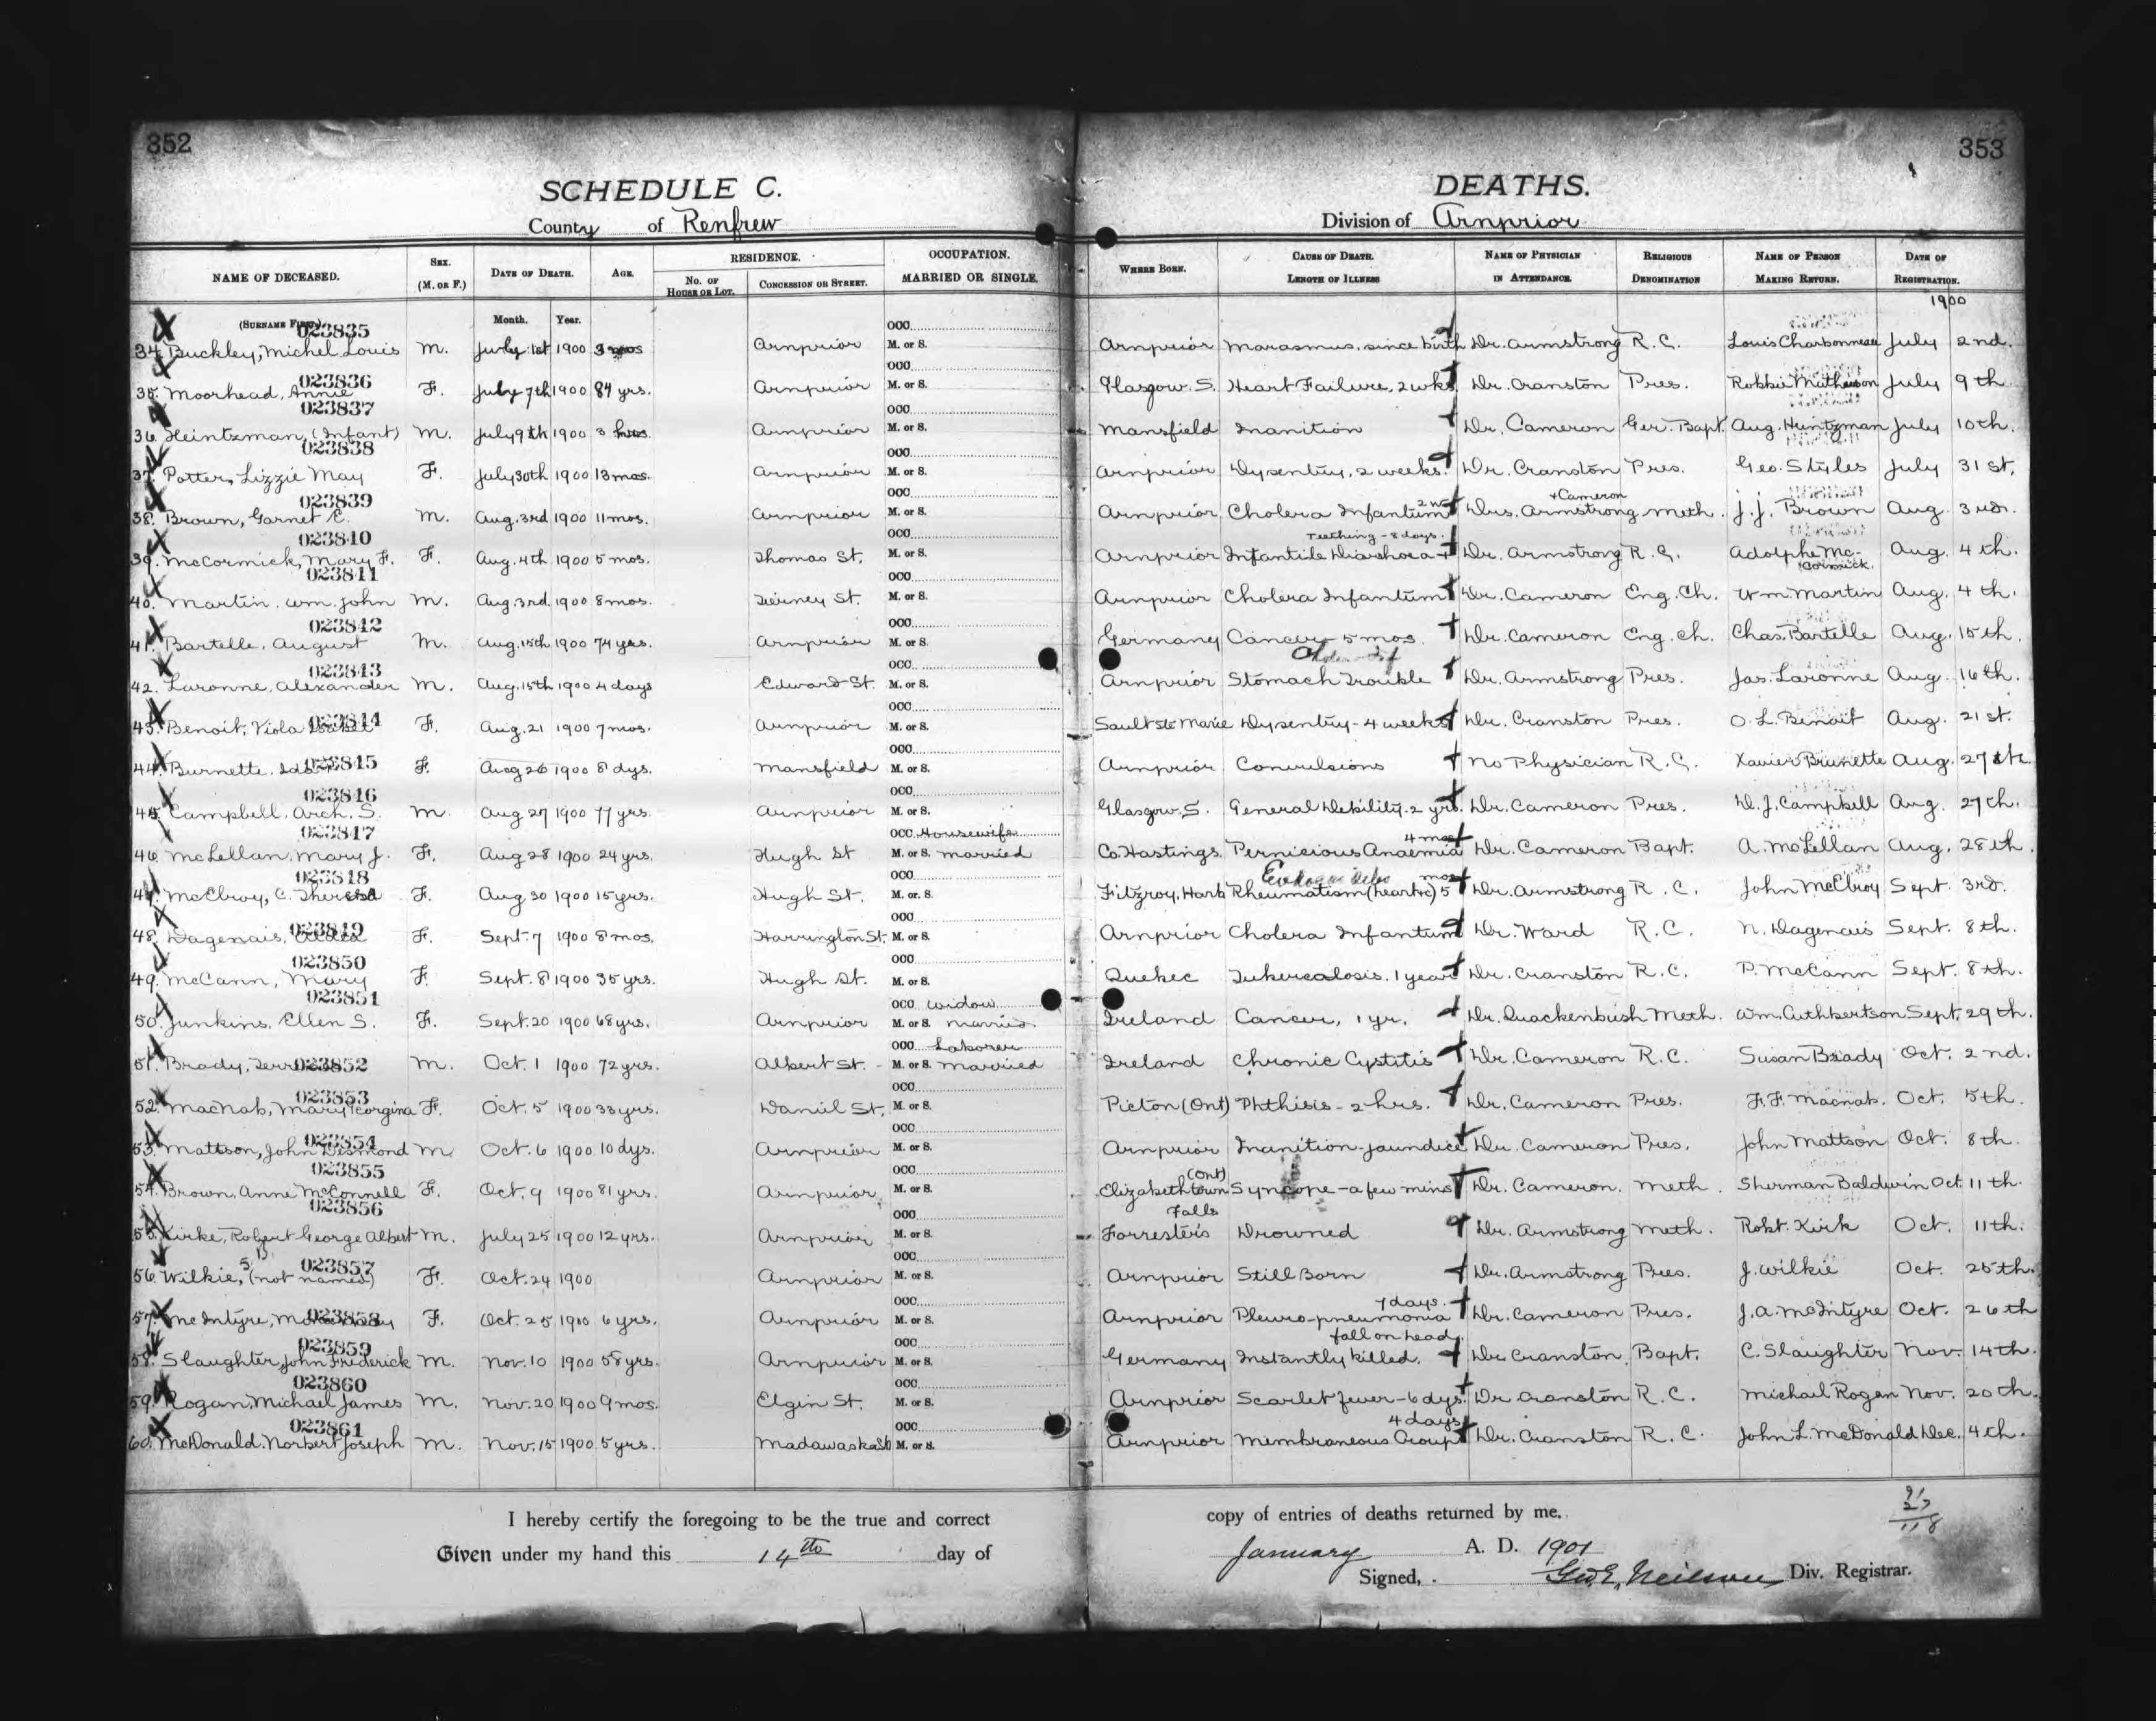 352
353
SCHEDULE C.
DEATHS.
County of Renfrew
Division of Arnprior
NAME OF DECEASED. SEX. (M. OR F.) DATE OF DEATH. AGE. RESIDENCE. No. OF HOUSE OR LOT. CONCESSION OR STREET. OCCUPATION. MARRIED OR SINGLE. WHERE BORN. CAUSE OF DEATH. LENGTH OF ILLNESS NAME OF PHYSICIAN IN ATTENDANCE. RELIGIOUS DENOMINATION NAME OF PERSON MAKING RETURN. DATE OF REGISTRATION.
(SURNAME FIRST) Month. Year. 1900
023835 OCC.
34. Buckley, Michel Louis M. July 1st 1900 3 Arnprior M. or S. Arnprior Marasmus, since birth Dr. Armstrong R. C. Louis Charbonneau July 2nd.
023836 OCC.
35. Moorhead, Annie F. July 7th 1900 84 yrs. Arnprior M. or S. Glasgow. S. Heart Failure, 2 wks. Dr. Cranston Pres. Robbie Matheson July 9th
023837 OCC.
36. Heintzman, (Infant) M. July 9th 1900 3 hrs. Arnprior M. or S. Mansfield Inanition Dr. Cameron Ger. Bapt. Aug. Heintzman July 10th.
023838 OCC.
37. Potter, Lizzie May F. July 30th 1900 13 mos. Arnprior M. or S. Arnprior Dysentry, 2 weeks. Dr. Cranston Pres. Geo. Styles July 31st.
023839 OCC. 2 w + Cameron
38. Brown, Garnet E. M. Aug. 3rd 1900 11 mos. Arnprior M. or S. Arnprior Cholera Infantum Drs. Armstrong Meth. J. J. Brown Aug 3rd.
023840 OCC. Teething - 8 days.
39. McCormick, Mary F. F. Aug. 4th 1900 5 mos. Thomas St. M. or S. Arnprior Infantile Diarrhoea + Dr. Armstrong R. C. Adolphe McCormick Aug. 4th.
023841 OCC.
40. Martin, Wm. John M. Aug. 3rd. 1900 8 mos. Tierney St. M. or S. Arnprior Cholera Infantum Dr. Cameron Eng. Ch. Wm. Martin Aug. 4th.
023842 OCC.
41. Bartelle, August M. Aug. 15th 1900 74 yrs. Arnprior M. or S. Germany Cancer 5 mos. Dr. Cameron Eng. Ch. Chas. Bartelle Aug. 15th.
023843 OCC.
42. Laronne, Alexander M. Aug. 15th 1900 4 days Edward St. M. or S. Arnprior Stomach Trouble Dr. Armstrong Pres. Jas. Laronne Aug. 16th.
023844 OCC.
43. Benoit, Viola Isabel F. Aug. 21 1900 7 mos. Arnprior M. or S. Sault Ste Marie Dysentry - 4 weeks Dr. Cranston Pres. O. L. Benoit Aug. 21st.
023845 OCC.
44. Burnette, F. Aug 26 1900 8 dys. Mansfield M. or S. Arnprior Convulsions No Physician R. C. Xavier Brunette Aug. 27th
023846 OCC.
45. Campbell, Arch. S. M. Aug 27 1900 77 yrs. Arnprior M. or S. Glasgow, S. General Debility. 2 yrs. Dr. Cameron Pres. D. J. Campbell Aug. 27th.
023847 OCC. Housewife 4 mos
46. McLellan, Mary J. F. Aug 28 1900 24 yrs. Hugh St M. or S. Married Co. Hastings. Pernicious Anaemia Dr. Cameron Bapt. A. McLellan Aug. 28th.
023848 OCC. mos
47. McElroy, C. Theresa F. Aug 30 1900 15 yrs. Hugh St. M. or S. Fitzroy, Harb Rheumatism (heart) 5 Dr. Armstrong R. C. John McElroy Sept. 3rd.
023849 OCC.
48. Dagenais, F. Sept. 7 1900 8 mos. Harrington St. M. or S. Arnprior Cholera Infantum Dr. Ward R. C. N. Dagenais Sept. 8th.
023850 OCC.
49. McCann, Mary F. Sept. 8 1900 35 yrs. Hugh St. M. or S. Quebec Tuberculosis. 1 year Dr. Cranston R. C. P. McCann Sept. 8th.
023851 OCC. Widow
50. Junkins, Ellen S. F. Sept. 20 1900 68 yrs. Arnprior M. or S. Married Ireland Cancer, 1 yr. Dr. Quackenbush Meth. Wm. Cuthbertson Sept. 29th.
023852 OCC. Laborer
51. Brady, M. Oct. 1 1900 72 yrs. Albert St. M. or S. Married Ireland Chronic Cystitis Dr. Cameron R. C. Susan Brady Oct. 2nd.
023853 OCC.
52. MacNab, Mary Georgina F. Oct. 5 1900 33 yrs. Daniel St. M. or S. Picton (Ont) Phthisis - 2 hrs. Dr. Cameron Pres. F. F. Macnab. Oct. 5th.
023854 OCC.
53. Mattson, John Desmond M. Oct. 6 1900 10 dys. Arnprior M. or S. Arnprior Inanition - jaundice Dr. Cameron Pres. John Mattson Oct. 8th.
023855 OCC. (Ont)
54. Brown, Anne McConnell F. Oct. 9 1900 81 yrs. Arnprior M. or S. Elizabethtown Syncope - a few mins Dr. Cameron. Meth. Sherman Baldwin Oct. 11th.
023856 OCC. Falls
55. Kirke, Robert George Albert M. July 25 1900 12 yrs. Arnprior M. or S. Forresters Drowned Dr. Armstrong Meth. Robt. Kirk Oct. 11th.
023857 OCC.
56. Wilkie, (not named) F. Oct. 24 1900 Arnprior M. or S. Arnprior Still Born Dr. Armstrong Pres. J. Wilkie Oct. 25th.
023858 OCC. 7 days.
57. McIntyre, F. Oct. 25 1900 6 yrs. Arnprior M. or S. Arnprior Pleuro-pneumonia Dr. Cameron Pres. J. A. McIntyre Oct. 26th
023859 OCC. fall on head.
58. Slaughter, John Frederick M. Nov. 10 1900 58 yrs. Arnprior M. or S. Germany Instantly killed. Dr. Cranston. Bapt. C. Slaughter Nov. 14th.
023860 OCC.
59. Rogan, Michael James M. Nov. 20 1900 9 mos. Elgin St. M. or S. Arnprior Scarlet fever - 6 dys. Dr Cranston R. C. Michael Rogan Nov. 20th.
023861 OCC. 4 days
60. McDonald, Norbert Joseph M. Nov. 15 1900 5 yrs. Madawaska St M. or S. Arnprior Membraneous Croup Dr. Cranston R. C. John L. McDonald Dec. 4th.
I hereby certify the foregoing to be the true and correct copy of entries of deaths returned by me.
Given under my hand this 14th day of January A. D. 1901
Signed, Geo. E. Neilson Div. Registrar.
91
27
118